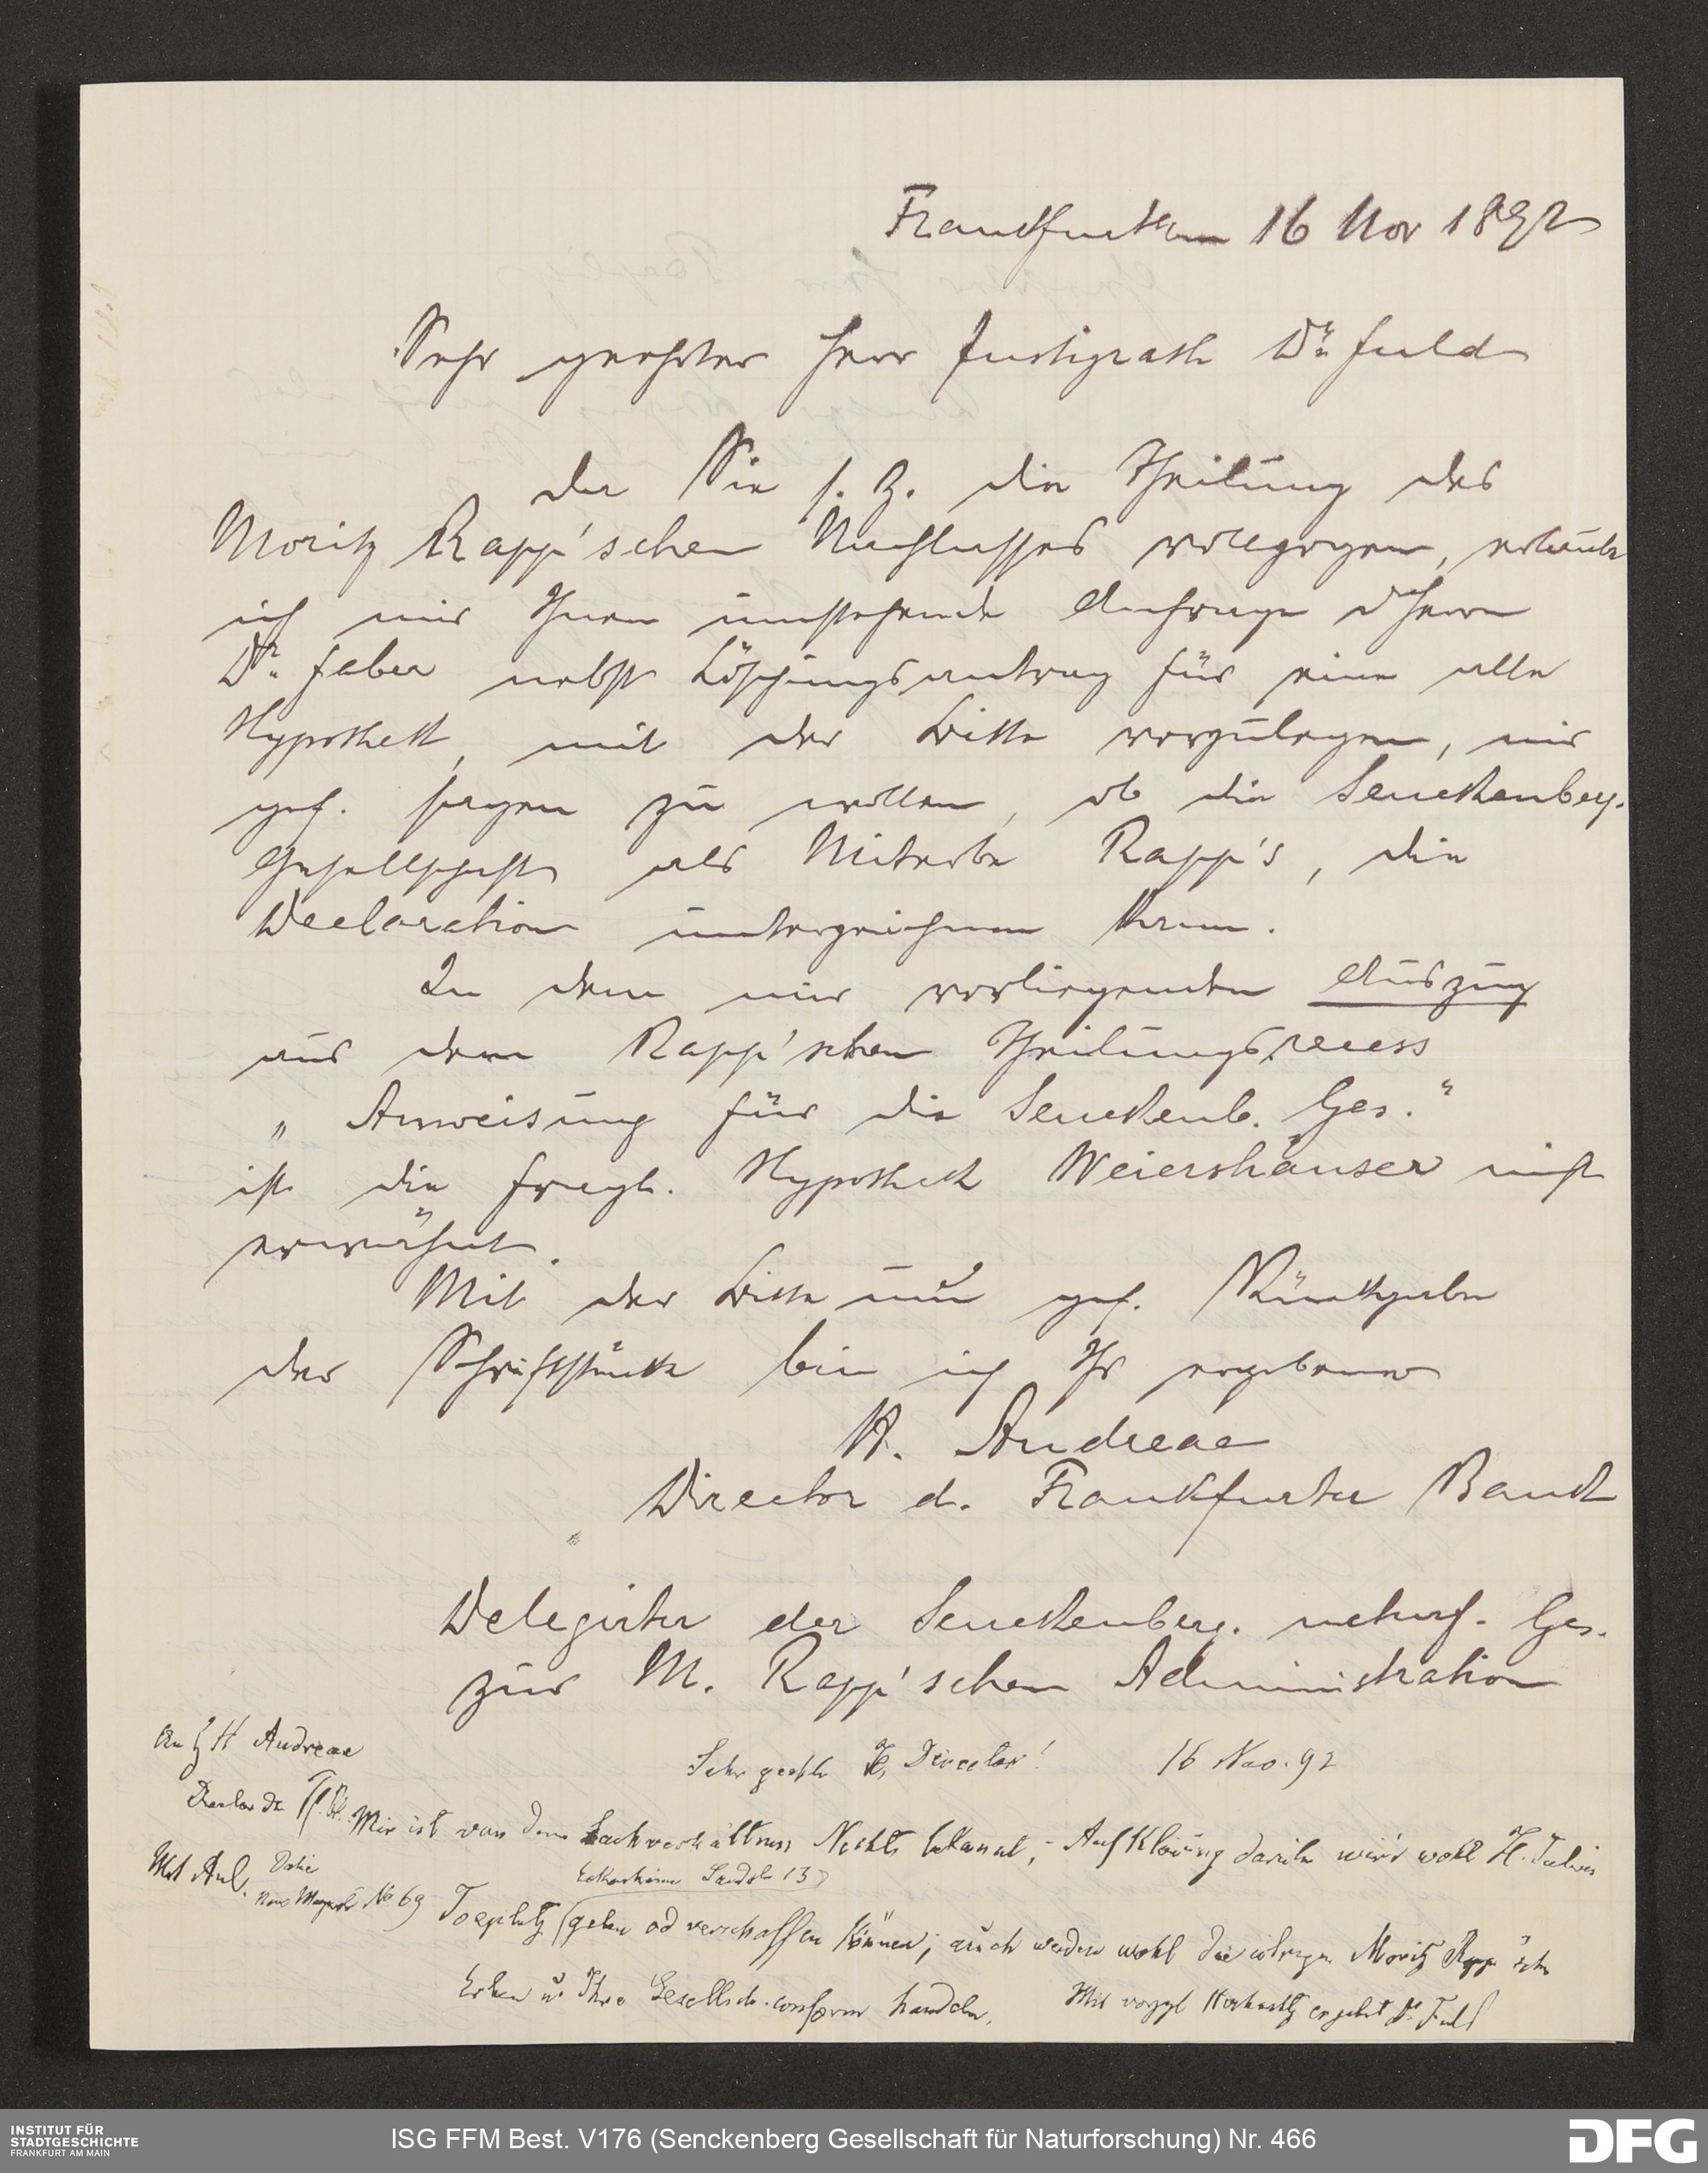 Frankfurt a/m 16 Nov 1892
Sehr geehrter Herr Justizrath Dr. Fuld
da Sie s. Z. die Theilung des
Moritz Rapp'schen Nachlasses vollzogen, erlaube
ich mir Ihnen umstehende Anfrage d Herrn
Dr. Faber nebst Löschungsantrag für eine alte
Hypothek, mit der Bitte vorzulegen, mir
gef. sagen zu wollen, ob die Senckenberg.
Gesellschaft als Miterbe Rapp's, die
Declaration unterzeichnen kann.
In dem mir vorliegenden Auszug
aus dem Rapp'schen Theilungsrecess
„Anweisung für die Senckenb. Ges."
ist die fragl. Hypotheck Weiershäuser nicht
erwähnt.
Mit der Bitte um gef. Rückgabe
der Schriftstücke bin ich Ihr ergebener
A. Andreae
Director d. Frankfurter Bank
Delegirter der Senckenberg. naturf. Ges.
zur M. Rapp'schen Administration
An H Andreae
Director der Ff. Bk.
Mit Anl.
Sehr geehrter H. Director! 16 Nov. 92
Mir ist von dem Sachverhältniss Nichts bekannt, - Aufklärung darüber wird wohl H. Julius
Eckenheimer Landstr 13
No 69 Toeplitz geben od verschaffen können; auch werden wohl die übrigen Moritz Rapp'schen
Erben u. Ihre Gesellsch. conform handeln.
Mit vorzgl Hochachtg ergebent Dr. Fuld
INSTITUT FÜR
STADTGESCHICHTE
FRANKFURT AM MAIN
ISG FFM Best. V176 (Senckenberg Gesellschaft für Naturforschung) Nr. 466
DFG